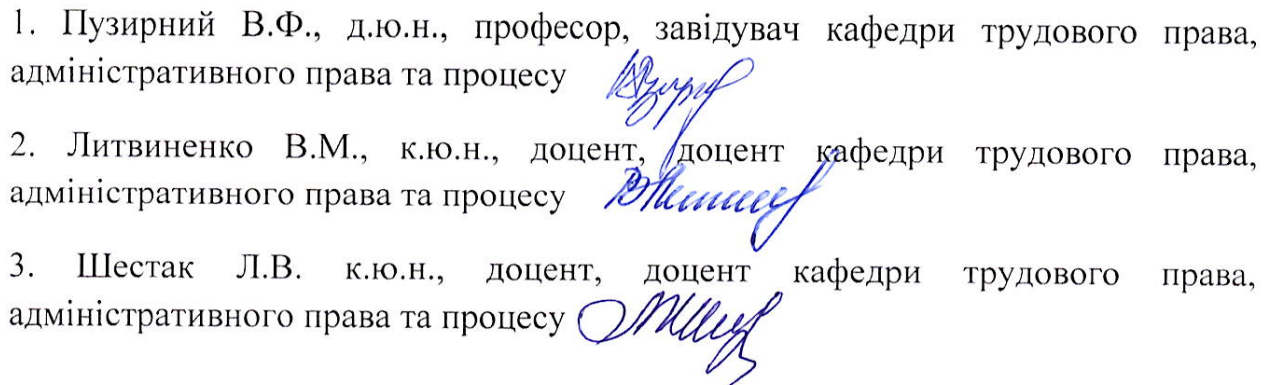 1. Пузирний В.Ф., д.ю.н., професор, завідувач кафедри трудового права,
адміністративного права та процесу
2. Литвиненко В.М., к.ю.н., доцент, доцент кафедри трудового права,
адміністративного права та процесу
3. Шестак Л.В. к.ю.н., доцент, доцент кафедри трудового права,
адміністративного права та процесу